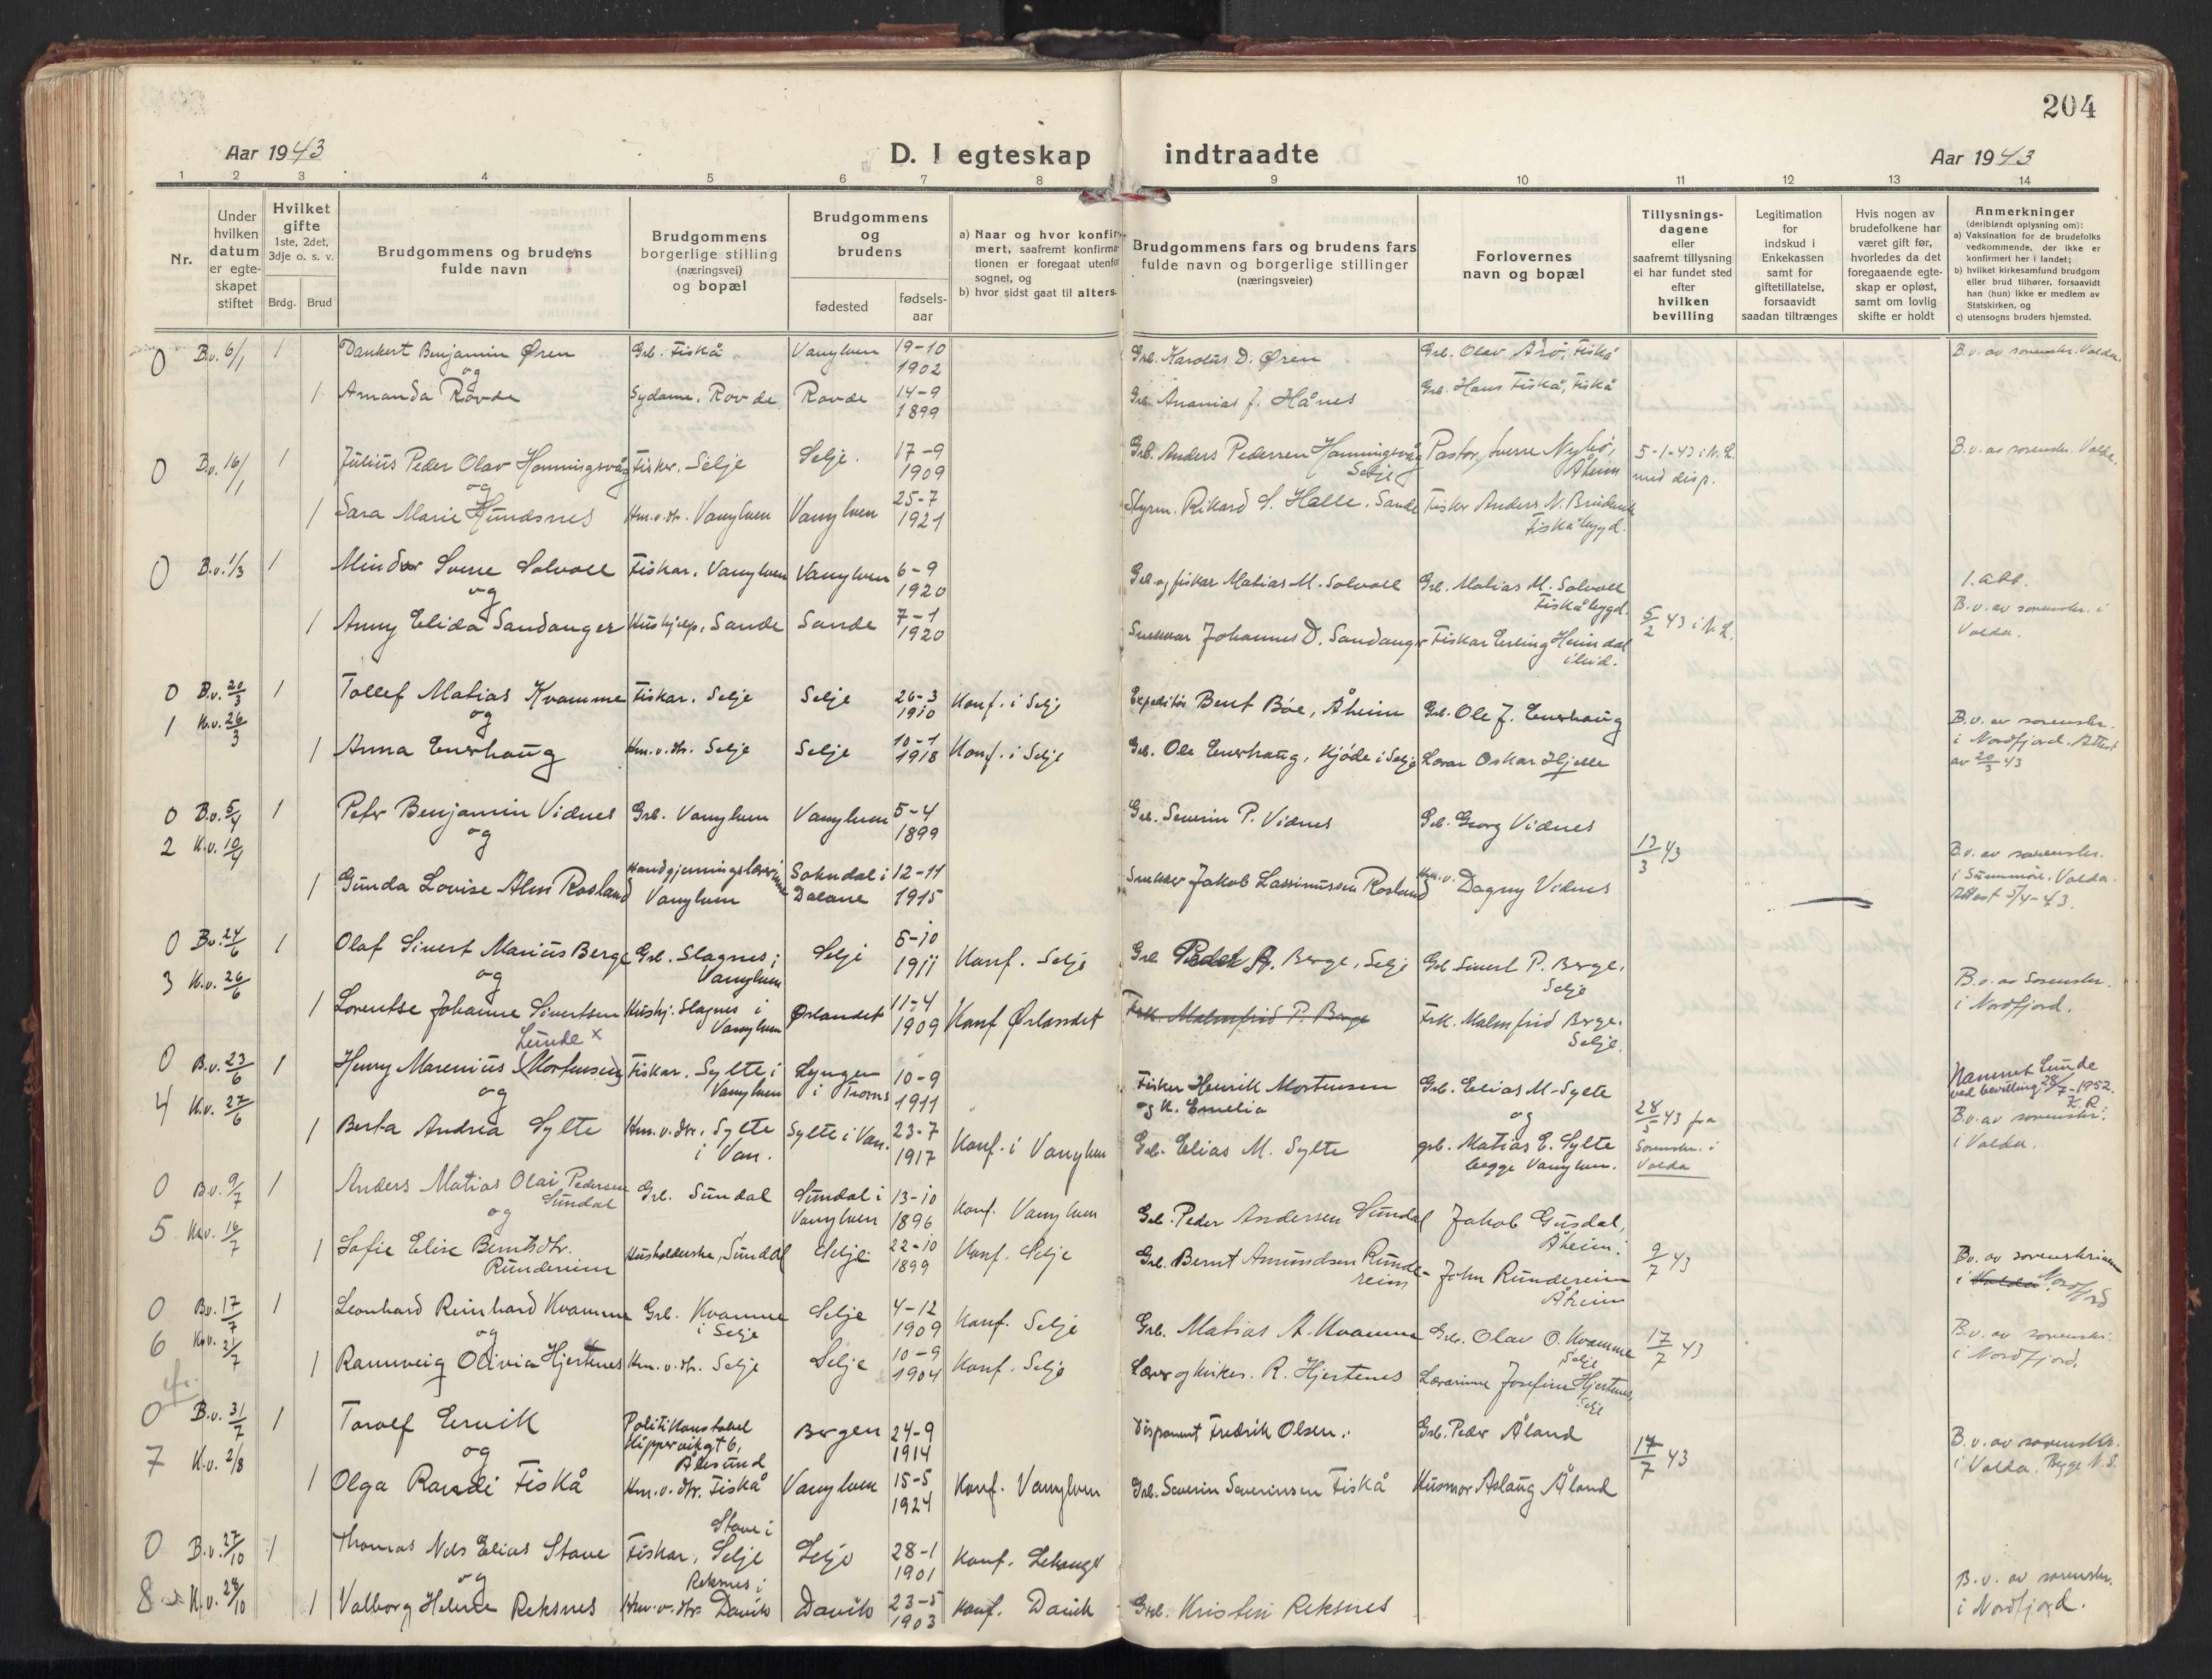 204
Aar 1943
D. I egteskap indtraadte
Aar 1943
1 2 3 4 5 6 7 8 9 10 11 12 13 14
Nr.
Under hvilken datum er egteskapet stiftet
Hvilket gifte 1ste, 2det, 3dje o. s. v.
Brdg. Brud
Brudgommens og brudens fulde navn
Brudgommens borgerlige stilling (næringsvei) og bopæl
Brudgommens og brudens
fødested
fødsels-aar
a) Naar og hvor konfirmert, saafremt konfirmationen er foregaat utenfor sognet, og
b) hvor sidst gaat til alters.
Brudgommens fars og brudens fars fulde navn og borgerlige stillinger (næringsveier)
Forlovernes navn og bopæl
Tillysnings-dagene eller saafremt tillysning ei har fundet sted efter hvilken bevilling
Legitimation for indskud i Enkekassen samt for giftetillatelse, forsaavidt saadan tiltrænges
Hvis nogen av brudefolkene har været gift før, hvorledes da det foregaaende egteskap er opløst, samt om lovlig skifte er holdt
Anmerkninger (deriblandt oplysning om):
a) Vaksination for de brudefolks vedkommende, der ikke er konfirmert her i landet;
b) hvilket kirkesamfund brudgom eller brud tilhører, forsaavidt han (hun) ikke er medlem av Statskirken, og
c) utensogns bruders hjemsted.
0 B.v. 6/1 1 Dankert Benjamin Øren Grb. Fiskå Vanylven 19-10 1902 Grb. Karolus D. Øren Grb. Olav Arø, Fiskå B.v. av sorenskr. Volda.
og
1 Amanda Rovde Sydame, Rovde Rovde 14-9 1899 Grb. Ananias J. Hånes Grb. Hans Fiskå, Fiskå
0 B.v. 16/1 1 Julius Peder Olav Honningsvåg Fisker, Selje Selje. 17-9 1909 Grb. Anders Pedersen Honningsvåg Selje Pastor Sverre Nybø, Åheim 5-1-43 i N.L. med disp. B.v. av sorenskr. Volda.
og
1 Sara Marie Hundsnes Hm.v.dtr. Vanylven Vanylven 25-7 1921 Styrm. Rikard S. Halle, Sande Fisker Anders N. Fiskåbygd.
0 B.v. 1/3 1 Mindor Sverre Solvoll Fiskar, Vanylven Vanylven 6-9 1920 Grb. og fiskar Matias M. Solvoll Grb. Matias M. Solvoll Fiskåbygd.
og
1 Anny Elida Sandanger Hushjelp, Sande Sande 7-1 1920 Snekkar Johannes D. Sandanger Fiskar Erling Heimdal ibid. 5/2 43 i N.L. B.v. av sorenskr. i Volda.
0 B.v. 20/3 1 Tollef Matias Kvamme Fiskar, Selje Selje 26-3 1910 Konf. i Selje Expeditør Bent Bøe, Åheim Grb. Ole J. Enerhaug
1 K.v. 26/3 og
1 Anna Enerhaug Hm.v.dtr. Selje Selje 10-1 1918 Konf. i Selje Grb. Ole Enerhaug, Kjøde i Selje Lærar Oskar Hjelle B.v. av sorenskr. i Nordfjord. Attest av 20/3 43
0 B.v. 5/4 1 Peter Benjamin Vidnes Grb. Vanylven Vanylven 5-4 1899 Grb. Severin P. Vidnes Grb. Georg Vidnes
2 K.v. 10/4 og 13/3 43
1 Gunda Lovise Alm Rosland Handgjerningslærerinne Vanylven Sokndal i Dalane 12-11 1915 Snekker Jakob Lassinussen Rosland Hm.v. Dagny Vidnes B.v. av sorenskr. i Sunnmøre, Volda. Attest 5/4-43.
0 B.v. 24/6 1 Olaf Sivert Marius Berge Grb. Slagnes i Vanylven Selje 5-10 1911 Konf. Selje Grb. Peder A. Berge, Selje Grb. Sivert P. Berge, Selje
3 K.v. 26/6 og
1 Lorentse Johanne Sivertsen Hushj. Slagnes i Vanylven Ørlandet 11-4 1909 Konf Ørlandet Frk. Malmfrid P. Berge Frk. Malmfrid Berge. Selje. B.v. av sorenskr. i Nordfjord.
Lunde x
0 B.v. 23/6 1 Henry Marenius (Mortensen) Fiskar, Sylte i Vanylven Lyngen i Troms 10-9 1911 Fisker Henrik Mortensen og k. Emelia Grb. Elias M. Sylte Namnet Lunde ved bevilling 28/7-1952. K.R.
4 K.v. 27/6 og og
1 Berta Andrea Sylte Hm.v.dtr. Sylte i Van. Sylte i Van. 23-7 1917 Konf. i Vanylven Grb. Elias M. Sylte grb. Matias E. Sylte begge Vanylven. 28/5 43 fra Sorenskr. i Volda B.v. av sorenskr. i Volda.
0 B.v. 9/7 1 Anders Matias Olai Pedersen Sundal Grb. Sundal Sundal i Vanylven 13-10 1896 Konf. Vanylven Grb. Peder Andersen Sundal Jakob Gusdal, Åheim.
5 K.v. 16/7 og
1 Sofie Elise Berntsdtr. Rundereim Husholderske, Sundal Selje 22-10 1899 Konf. Selje Grb. Bernt Amundsen Rundereim John Rundereim Åheim 9/7 43 B.v. av sorenskriver i Volda Nordfjord
0 B.v. 17/7 1 Leonhard Reinhard Kvamme Grb. Kvamme i Selje Selje 4-12 1909 Konf. Selje Grb. Matias A. Kvamme Grb. Olav O. Kvamme Selje 17/7 43 B.v. av sorenskr. i Nordfjord.
6 K.v. 21/7 og
1 Rannveig Olivia Hjertenes Hm.v.dtr. Selje Selje 10-9 1904 Konf. Selje Lærer og kirkes. R. Hjertenes Lærarinne Josefine Hjertenes, Selje
0 B.v. 31/7 1 Torolf Ervik Politikonstabel 6, Ålesund Bergen 24-9 1914 Disponent Fredrik Olsen. Grb. Peder Åland
7 K.v. 2/8 og 17/7 43
1 Olga Randi Fiskå Hm.v.dtr. Fiskå Vanylven 15-5 1924 Konf. Vanylven Grb. Severin Severinsen Fiskå Husmor Aslaug Åland B.v. av sorenskr. i Volda. Begge N.S.
0 B.v. 27/10 1 Thomas Nils Elias Stave Fiskar, Stave i Selje Selje 28-1 1901 Konf.
og
8 K.v. 28/10 1 Valborg Helene Reksnes Hm.v.dtr. Reksnes i Davik Davik 23-5 1903 Konf. Davik Grb. Kristen Reksnes B.v. av sorenskr. i Nordfjord.